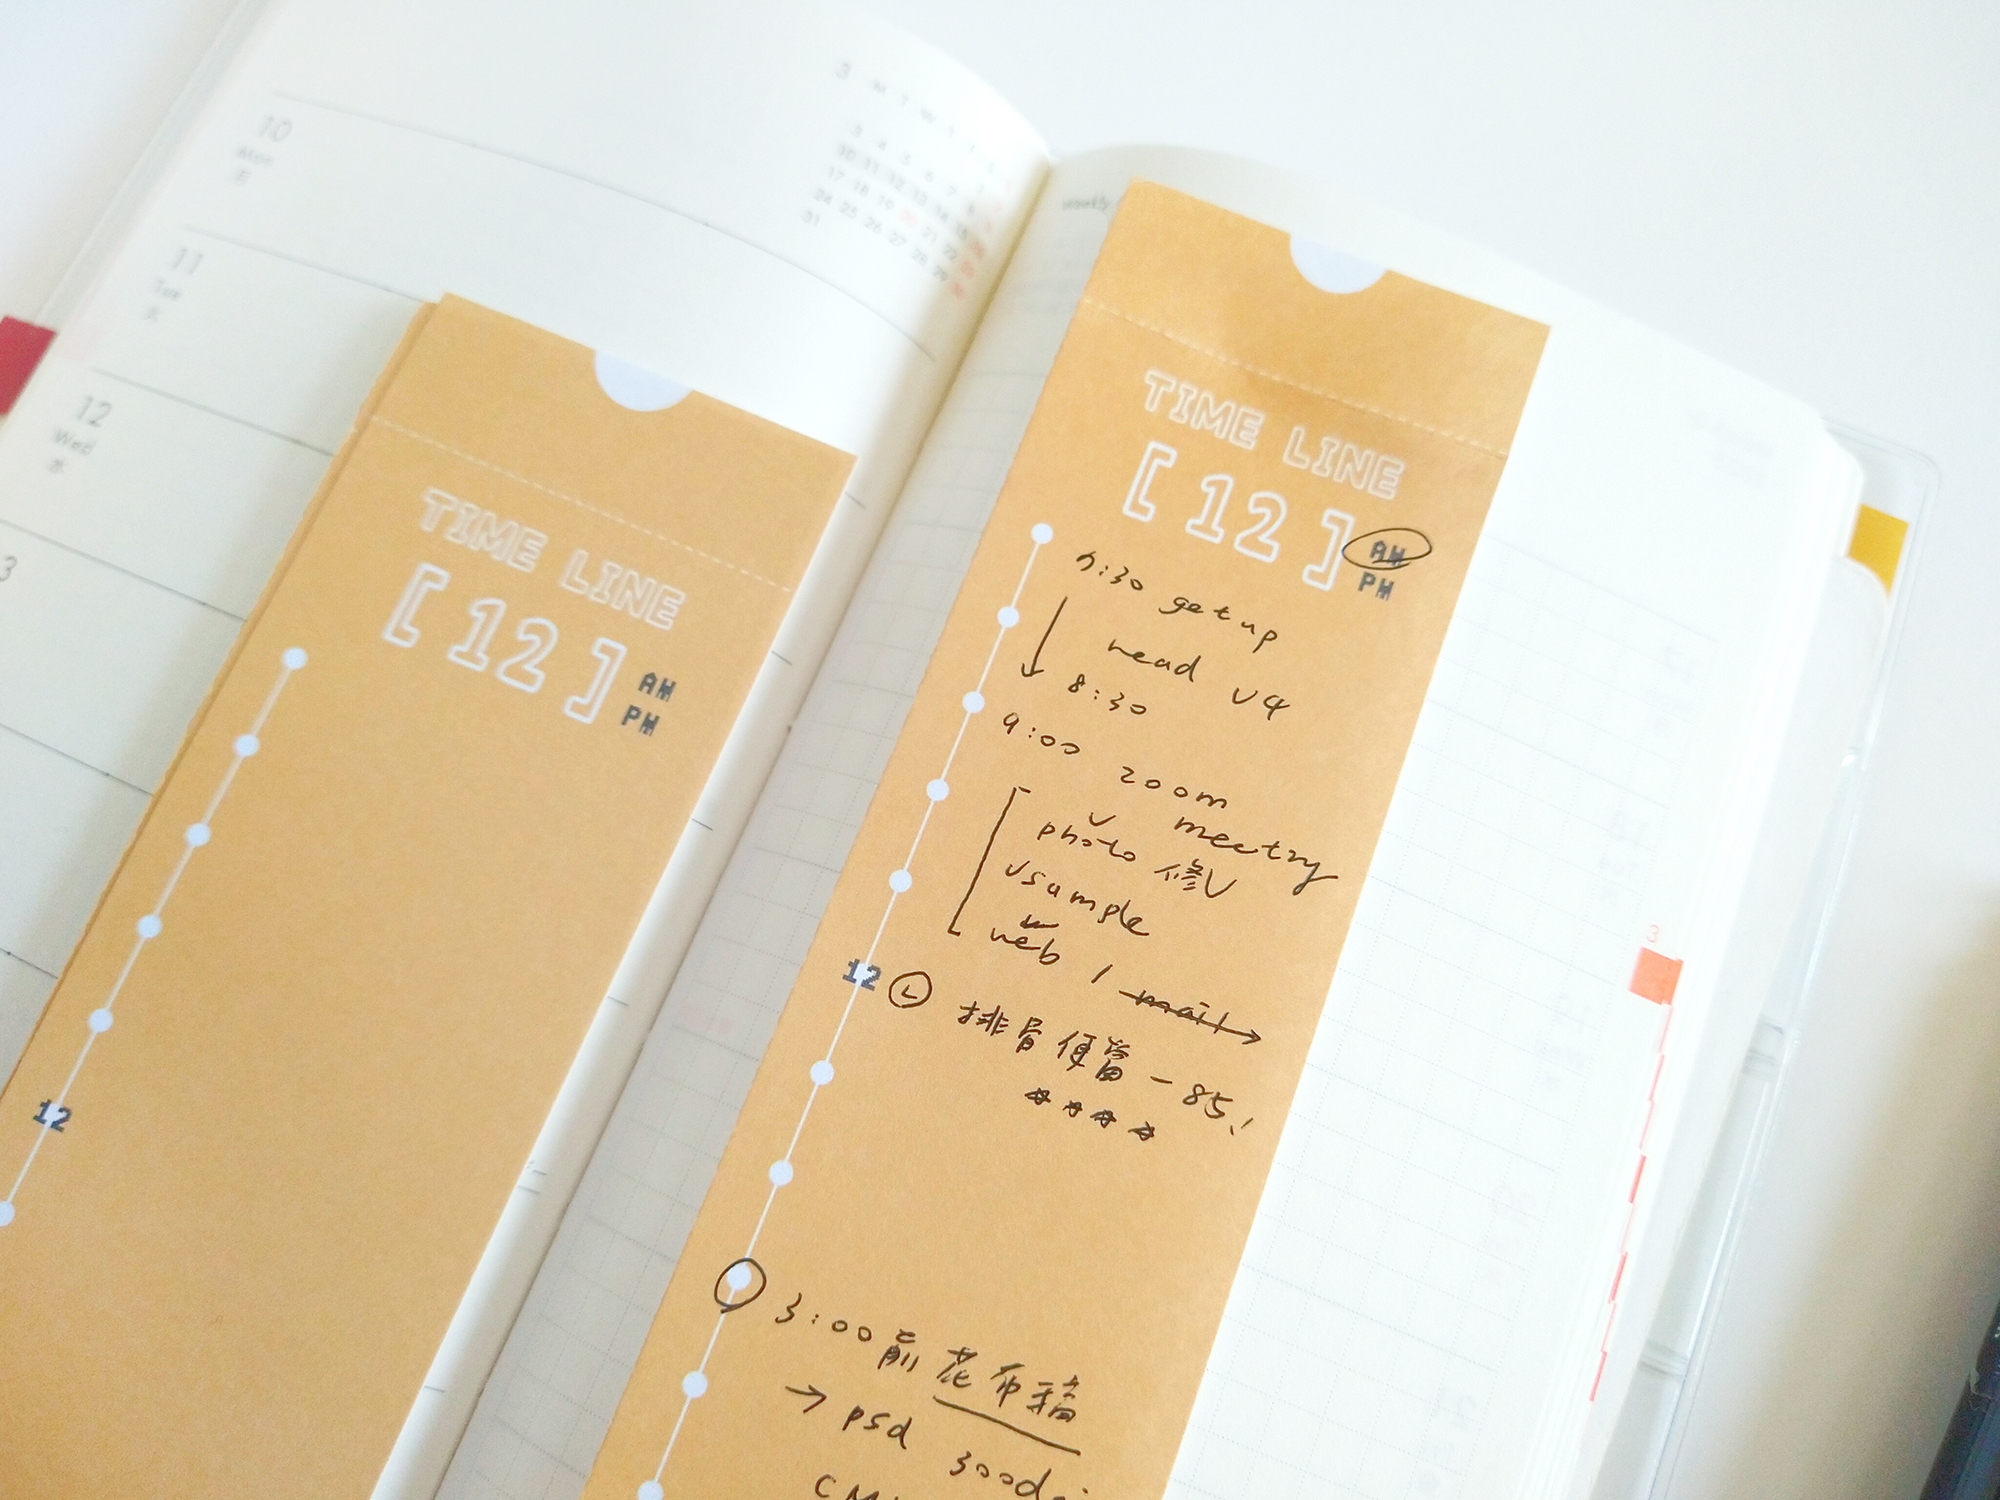 3 M T W T
3 4 5 6 7 8
10 11 12 13 14 15 16
17 18 19 20 21 22 23
24 25 26 27 28 29 30
31
10
Mon
月
11
Tue
火
12
Wed
水
3
TIME LINE
[ 12 ]
AM
PM
12
weekly
TIME LINE
[ 12 ]
AM
PM
7:30 get up
read v4
8:30
9:00 zoom
meeting
photo 修
sample
web / mail
12 L
排骨便當 - 85!
3:00 前 花布稿
→ psd 300d
CM
3